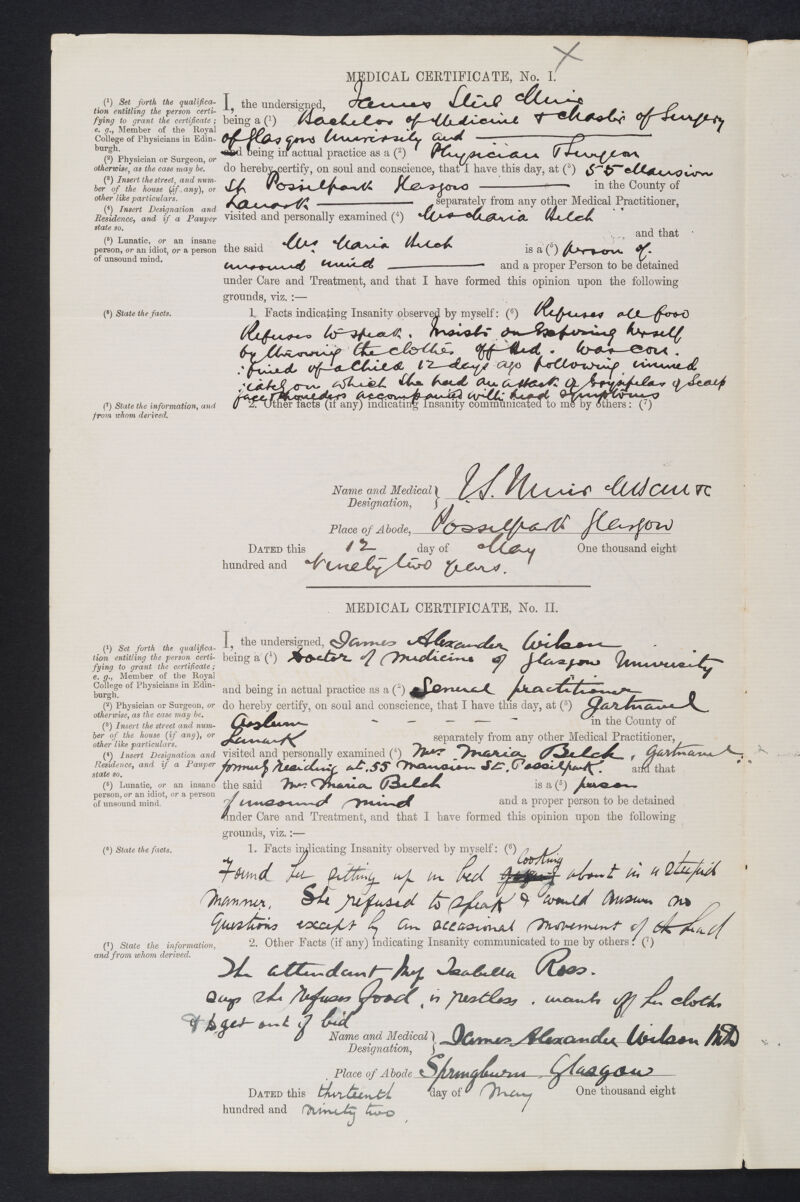 MEDICAL CERTIFICATE, No. I.
(1) Set forth the qualifica-
tion entitling the person certi-
fying to grant the certificate;
e. g., Member of the Royal
College of Physicians in Edin-
burgh.
(2) Physician or Surgeon, or
otherwise, as the case may be.
(3) Insert the street, and num-
ber of the house (if any), or
other like particulars.
(4) Insert Designation and
Residence, and if a Pauper
state so.
(5) Lunatic, or an insane
person, or an idiot, or a person
of unsound mind.
I, the undersigned, James Muir
being a (1) Bachelor of Medicine & Master of Surgery
of Glasgow University and
and being in actual practice as a (2) Physician & Surgeon
do hereby certify, on soul and conscience, that I have this day, at (3) 55 Mansion
St. Possilpark Glasgow in the County of
Lanark separately from any other Medical Practitioner,
visited and personally examined (4) Mrs Maria Belch
and that
the said Mrs Maria Belch is a (5) person of
unsound mind and a proper Person to be detained
under Care and Treatment, and that I have formed this opinion upon the following
grounds, viz. :—
(6) State the facts.
1. Facts indicating Insanity observed by myself: (6) Refuses all food
Refuses to speak. Insists on Exposing herself
by throwing the clothes off bed. Was con.
:fined of a Child 12 days ago following immed
:iately on which she had an attack of Erysipelas of Scalp
face & shoulders accompanied with head symptoms
(7) State the information, and
from whom derived.
2. Other facts (if any) indicating Insanity communicated to me by others: (7)
Name and Medical Designation, J. S. Muir
Place of Abode, Possilpark Glasgow
DATED this 12 day of May One thousand eight
hundred and Ninety two years.
MEDICAL CERTIFICATE, No. II.
(1) Set forth the qualifica-
tion entitling the person certi-
fying to grant the certificate;
e. g., Member of the Royal
College of Physicians in Edin-
burgh.
(2) Physician or Surgeon, or
otherwise, as the case may be.
(3) Insert the street and num-
ber of the house (if any), or
other like particulars.
(4) Insert Designation and
Residence, and if a Pauper
state so.
(5) Lunatic, or an insane
person, or an idiot, or a person
of unsound mind.
I, the undersigned, James Alexander Wilson
being a (1) Doctor of Medicine of Glasgow University
and being in actual practice as a (2) General practitioner
do hereby certify, on soul and conscience, that I have this day, at (3) Gartnavel
Asylum in the County of
Lanark separately from any other Medical Practitioner,
visited and personally examined (4) Mrs. Maria Belch, Gartnavel,
formerly residing at 55 Mansion St. Possilpark. and that
the said Mrs. Maria Belch is a (5) person
of unsound mind and a proper person to be detained
under Care and Treatment, and that I have formed this opinion upon the following
grounds, viz. :—
(6) State the facts.
1. Facts indicating Insanity observed by myself: (6)
looking
Found her sitting up in bed about in a stupid
manner. She refused to speak & would answer no
questions except by an occasional movement of the head
(7) State the information,
and from whom derived.
2. Other Facts (if any) indicating Insanity communicated to me by others: (7)
The attendant Isabella Ross.
says she refuses food, is restless, wants off her cloths
& to get out of bed
Name and Medical Designation, James Alexander Wilson M.D
Place of Abode Springburn Glasgow
DATED this thirteenth day of May One thousand eight
hundred and ninety two